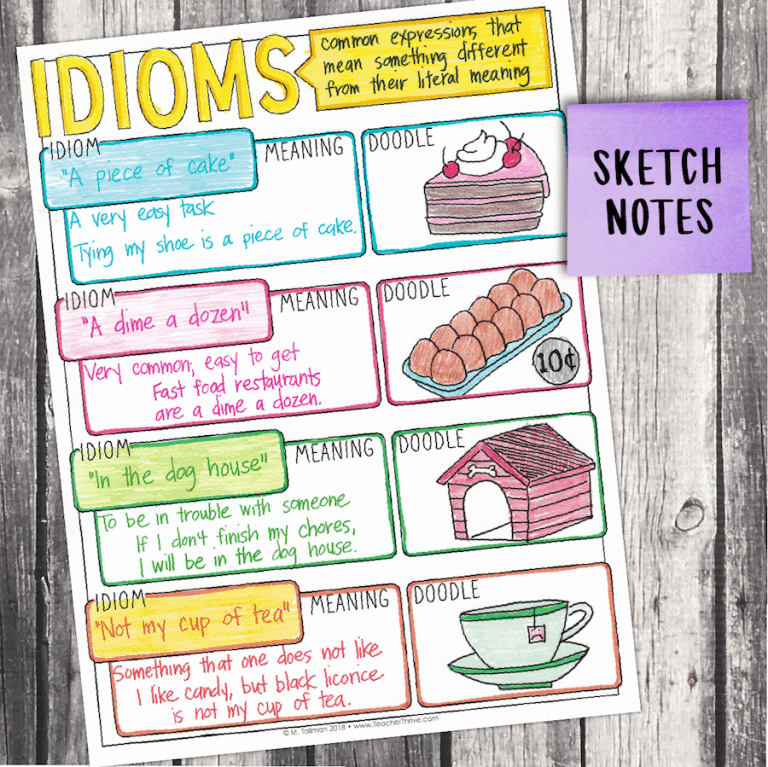 IDIOMS
common expressions that
mean something different
from their literal meaning
SKETCH
NOTES
IDIOM
"A piece of cake"
MEANING
A very easy task
Tying my shoe is a piece of cake.
DOODLE
IDIOM
"A dime a dozen"
MEANING
Very common, easy to get
Fast food restaurants
are a dime a dozen.
DOODLE
10¢
IDIOM
"In the dog house"
MEANING
To be in trouble with someone
If I don't finish my chores,
I will be in the dog house.
DOODLE
IDIOM
"Not my cup of tea"
MEANING
Something that one does not like
I like candy, but black licorice
is not my cup of tea.
DOODLE
© M. Tallman 2018 • www.TeacherThrive.com